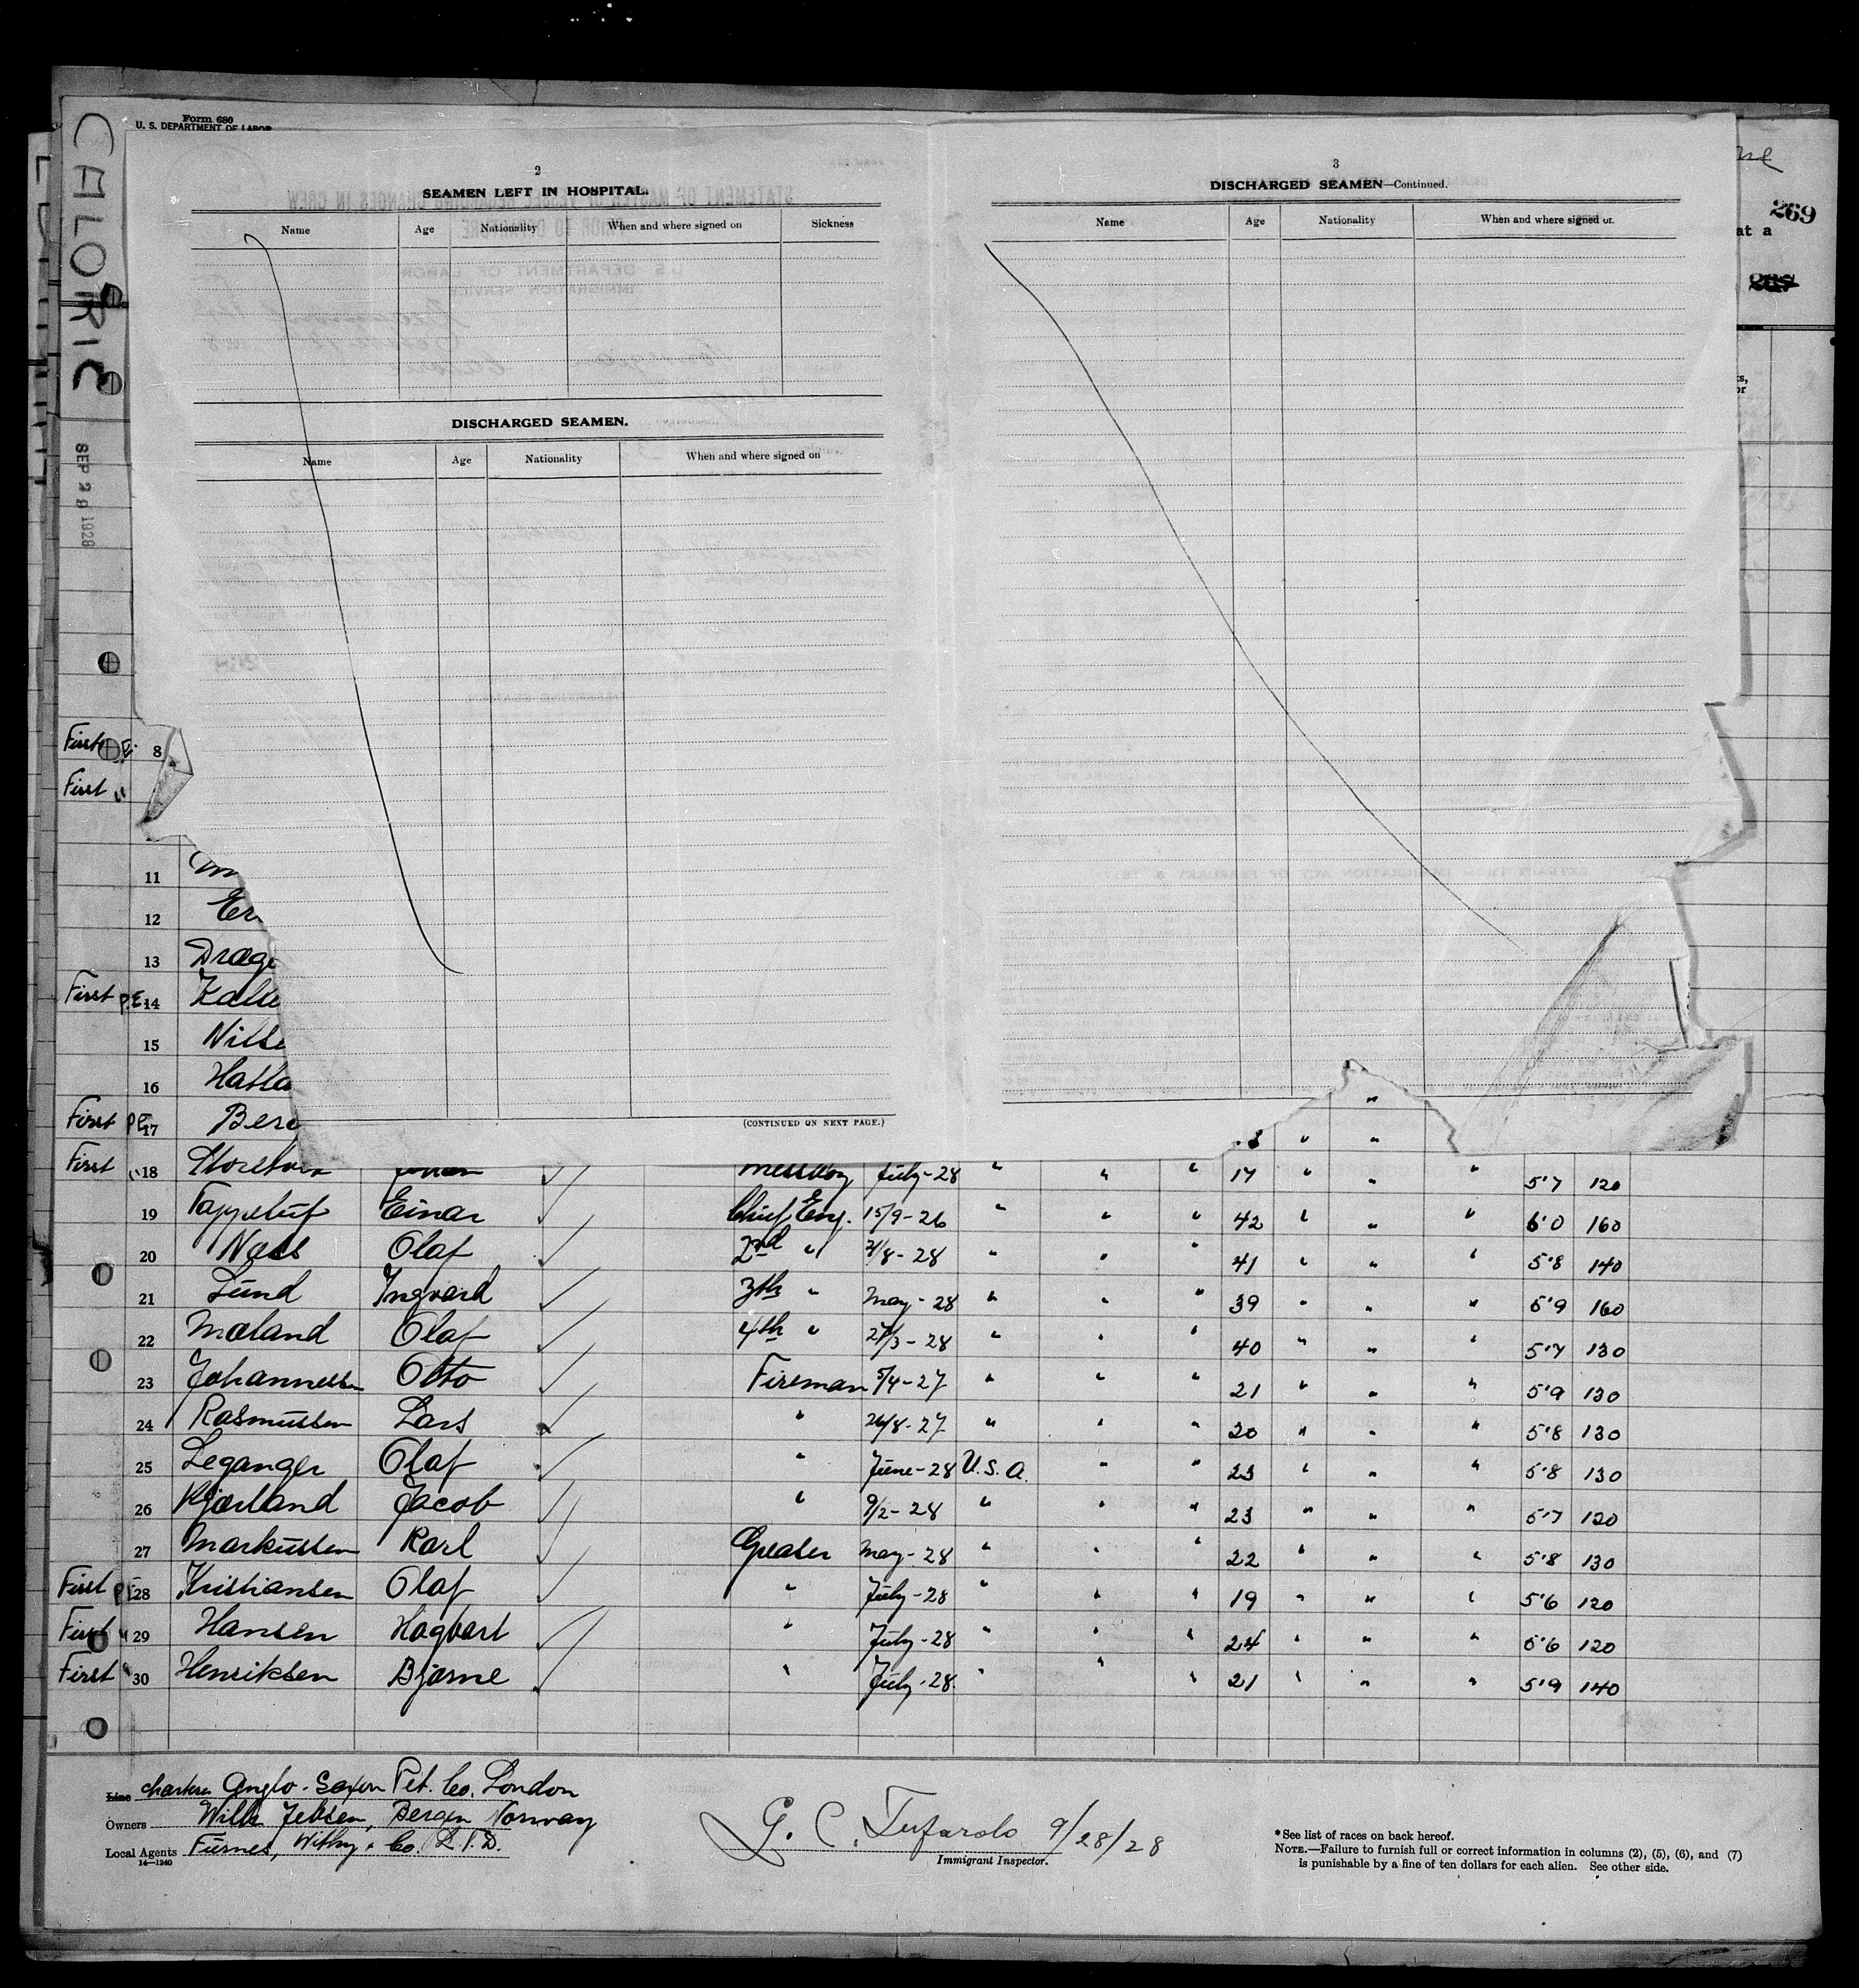 CALORIC
SEP 28 1928
Form 680
U. S. DEPARTMENT OF LABOR
2
SEAMEN LEFT IN HOSPITAL.
Name Age Nationality When and where signed on Sickness
DISCHARGED SEAMEN.
Name Age Nationality When and where signed on
(CONTINUED ON NEXT PAGE.)
3
DISCHARGED SEAMEN—Continued.
Name Age Nationality When and where signed on
269
at a
First 8
First "
11
12 Er
13 Drage
First P.E. 14
15 Nilse
16 Hatla
First P.E. 17 Berg
First " 18 Messboy July-28 " " " 17 " " " 5'7 120
19 Einar Chief Eng. 15/9-26 " " " 42 " " " 6'0 160
20 Ness Olaf 2nd " /8-28 " " " 41 " " " 5'8 140
21 Lund Ingvard 3th " May-28 " " " 39 " " " 5'9 160
22 Moland Olaf 4th " 27/3-28 " " " 40 " " " 5'7 130
23 Johannessen Otto Fireman 5/4-27 " " " 21 " " " 5'9 130
24 Rasmussen Lars " 26/8-27 " " " 20 " " " 5'8 130
25 Leganger Olaf " June-28 U.S.A. " " 23 " " " 5'8 130
26 Kjorland Jacob " 9/2-28 " " " 23 " " " 5'7 120
27 Markussen Karl Greaser May-28 " " " 22 " " " 5'8 130
First P.E. 28 Kristiansen Olaf " July-28 " " " 19 " " " 5'6 120
First " 29 Hansen Hagbart " July-28 " " " 24 " " " 5'6 120
First " 30 Henriksen Bjarne " July-28 " " " 21 " " " 5'9 140
Line Anglo-Saxon Pet. Co. London
Owners Wilh Jebsen, Bergen Norway
Local Agents Furness, Withy & Co. L.T.D.
14—1240
G. C. Tufarolo 9/28/28
Immigrant Inspector.
*See list of races on back hereof.
NOTE.—Failure to furnish full or correct information in columns (2), (5), (6), and (7)
is punishable by a fine of ten dollars for each alien. See other side.